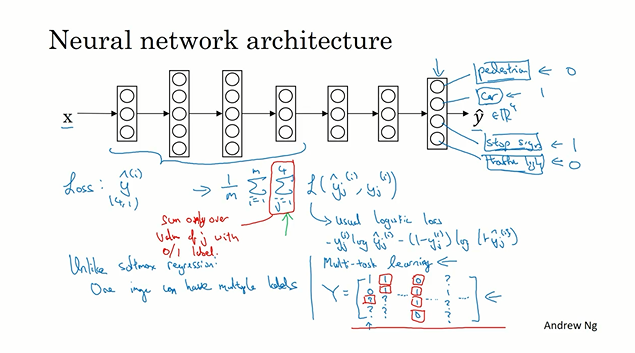 Neural network architecture
x
pedestrian ← 0
car ← 1
ŷ ∈ ℝ⁴
stop sign ← 1
traffic light ← 0
Loss: ŷ^(i) → 1/m Σ_{i=1}^{m} Σ_{j=1}^{4} L(ŷ_j^(i), y_j^(i))
(4,1)
Sum only over
value of j with
0/1 label.
→ usual logistic loss
-y_j^(i) log ŷ_j^(i) - (1-y_j^(i)) log (1-ŷ_j^(i))
Unlike softmax regression:
One image can have multiple labels
Multi-task learning ←
Y = [
1 1 0 ?
0 1 ... 1 ... ?
? ? ... 1 ... ?
? ? 0 ?
] ←
Andrew Ng